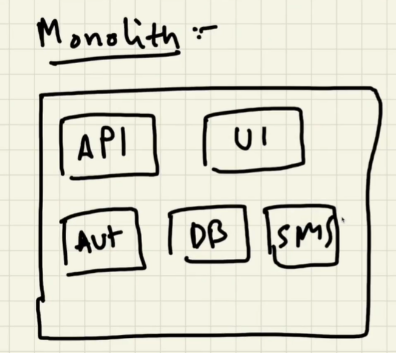 Monolith :-
API UI
Aut DB SMS